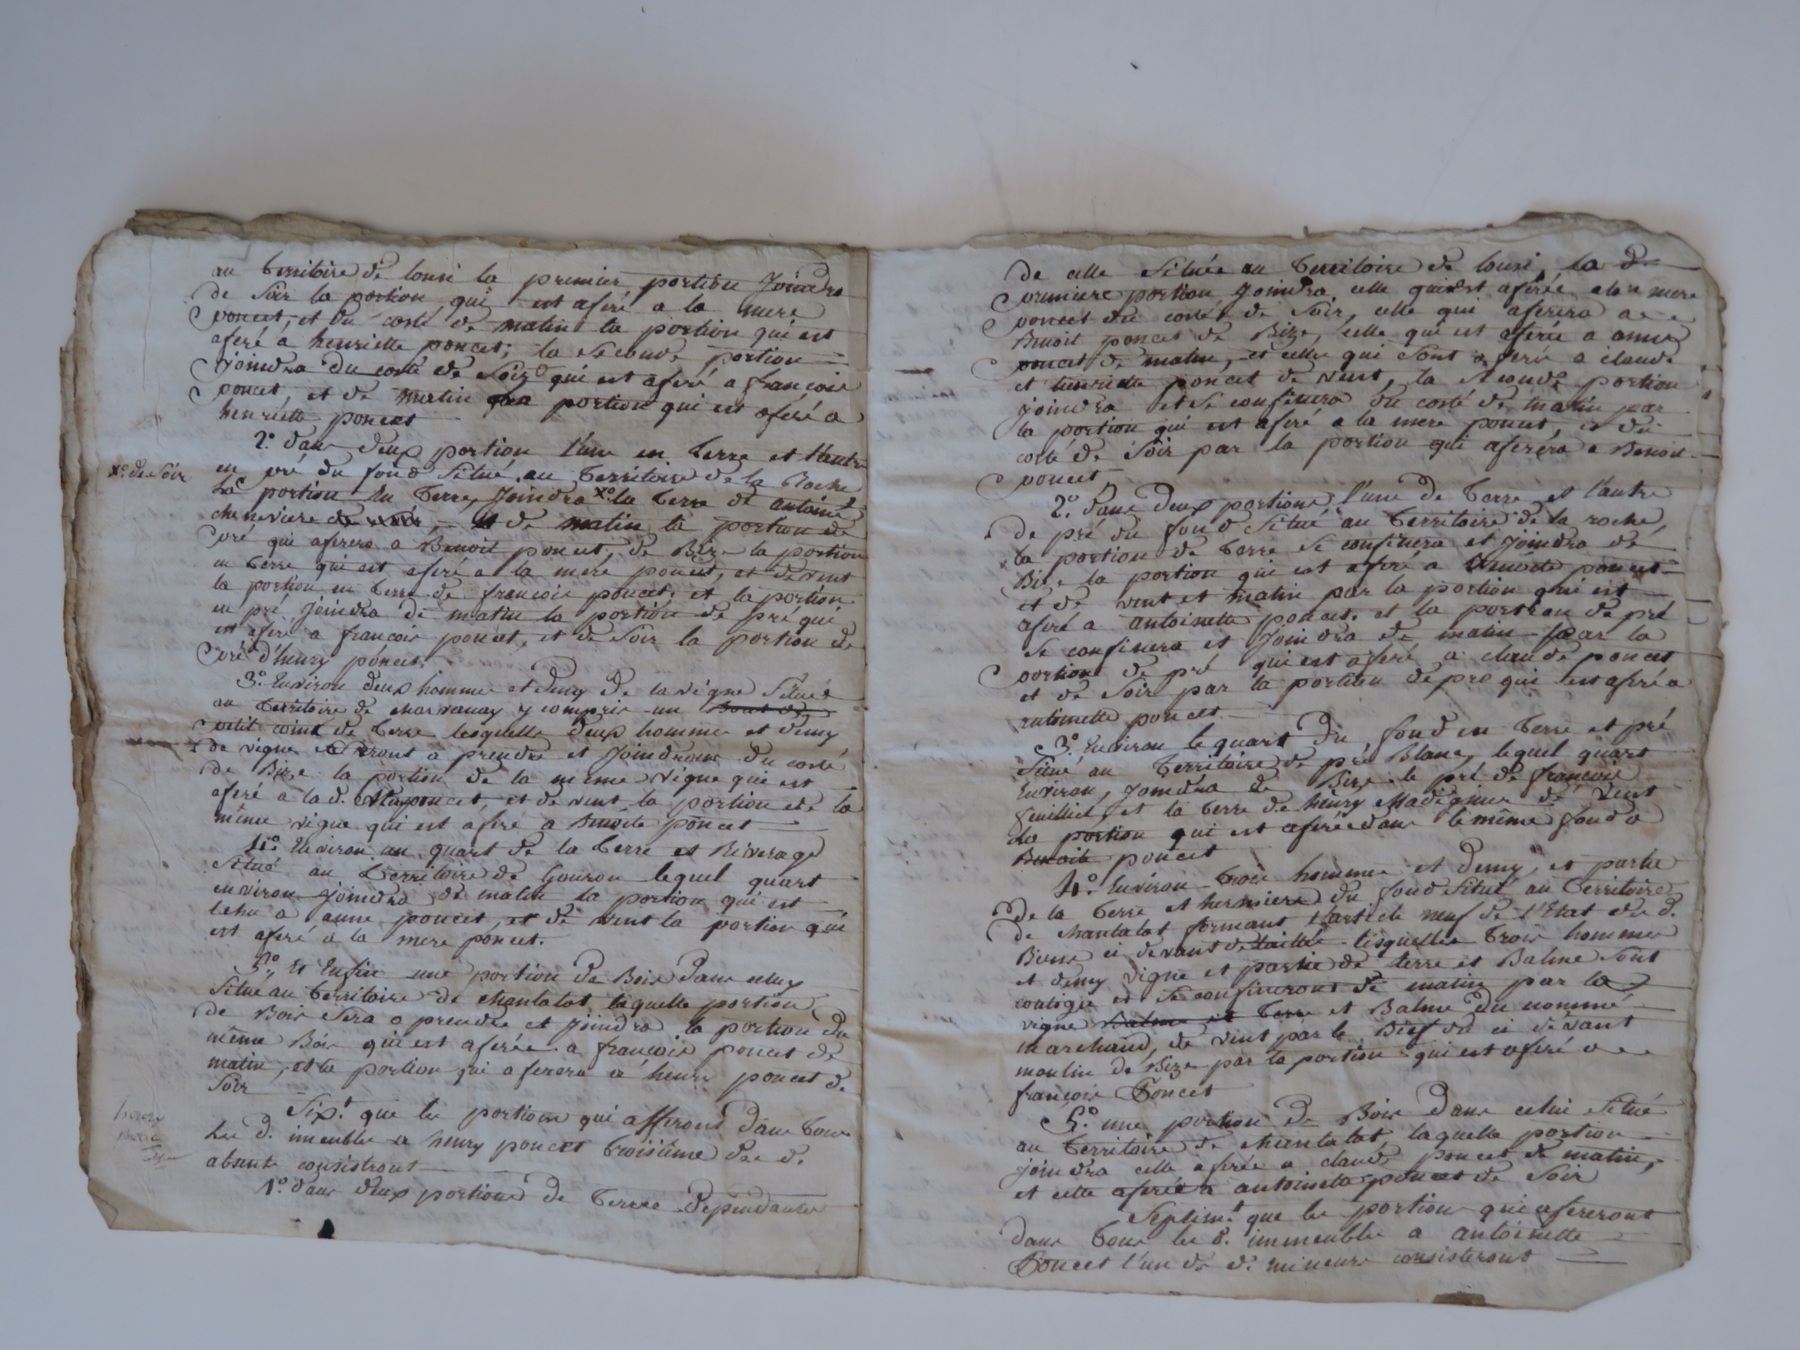 au territoire de louri la premier portion Joindra
de Soir la portion qui est aferé a la mere
poncet, et du costé de matin la portion qui est
aferé a henriette poncet; la Seconde portion
Joindra du costé de Soir qui est aferé a françois
poncet, et de matin la portion qui est aferé a
henriette poncet
2.° dans deux portion l'une en terre et l'autre
en pré du fond Situé au territoire de la Roche
La portion du terre, Joindra x° la terre de antoine
x° de Soir
cheneviere et de matin la portion de
pré qui aferera a Benoit poncet, de Bize la portion
en terre qui est aferé a la mere poncet, et de vent
la portion en terre de françois poncet, et la portion
en pré Joindra de matin la portion de pré qui
est aferé a françois poncet, et de Soir la portion de
pré d'henry poncet.
3.° Environ deux homme et demy de la vigne Située
au territoire de charvanay y compris un
petit coint de terre lesquelle deux homme et demy
de vigne Seront a prendre et Joindront du costé
de Bize la portion de la même vigne qui est
aferé a la d. poncet, et de vent la portion de la
même vigne qui est aferé a Benoite poncet
4.° Environ un quart de la terre et Riverage
Situé au Territoire de Gouron lequel quart
environ Joindra de matin la portion qui est
échu a anne poncet, et de vent la portion qui
est aferé a la mere poncet.
5.° Et Enfin une portion de Bois dans celuy
Situé au territoire de chantalot laquelle portion
de Bois Sera a prendre et Joindra la portion du
même Bois qui est aferée a françois poncet de
matin, et la portion qui aferera a henri poncet de
Soir
Six.t que les portions qui afferont dans tous
Les d. imeubles a henry poncet troisième des d.
henry
absents consistront
1.° dans deux portions de terres dependantes
de celle Située au territoire de louri, la d.
premiere portion Joindra celle qui est aferée a la mere
poncet du costé de Soir, celle qui aferera a
Benoit poncet de Bize, celle qui est aferée a anne
poncet de matin, et celles qui Sont aferé a claude
et henriette poncet de vent, la Seconde portion
Joindra et Se confinera du costé de matin par
la portion qui est aferé a la mere poncet, et du
costé de Soir par la portion qui aferera a Benoit
poncet
2.° Dans deux portions, l'une de terre et l'autre
de pré du fond Situé au territoire de la roche,
la portion de terre Se confinera et Joindra de
Bize la portion qui est aferé a Benoite poncet
et de vent et matin par la portion qui est
aferé a antoinette poncet. et la portion de pré
Se confinera et Joindra de matin par la
portion de pré qui est aferé a claude poncet
et de Soir par la portion de pré qui est aferé a
antoinette poncet
3.° Environ le quart du fond en terre et pré
Situé au territoire de pré Blanc, lequel quart
Environ, Joindra de Bize le pré de françois
feuillet, et la terre de henry Madignier de vent
la portion qui est aferée dans le même fond a
Benoit poncet
4.° Environ trois homme et demy, et partie
de la terre et hermiere du fond Situé au territoire
de chantalot formant l'article neuf de l'Etat des d.
Biens ci devant detaillé lesquelles trois hommes
et demy vigne et partie de terre et Balme Sont
contigue et Se confineront de matin par la
vigne et Balme du nommé
marchand, de vent par le Bief du ci devant
moulin de Bize par la portion qui est aferé a
françois Poncet
5.° une portion de Bois dans celui Situé
au territoire de chantalot, laquelle portion
joindra celle aferée a claude poncet de matin,
et celle aferée a antoinette poncet de Soir
Septim.t que les portions qui afereront
dans tous les d. immeubles a antoinette
Poncet l'un des d. mineurs consisteront